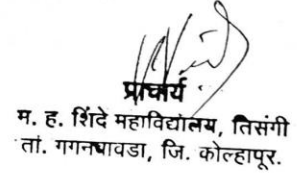 प्राचार्य
म. ह. शिंदे महाविद्यालय, तिसंगी
तां. गगनबावडा, जि. कोल्हापूर.